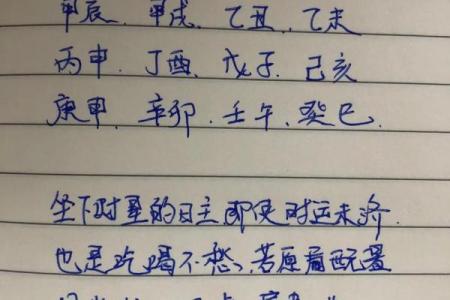 甲辰、甲戌、乙丑、乙未
丙申、丁酉、戊子、己亥
庚申、辛卯、壬午、癸巳.
坐下财星的日主即使时运未济.
也是吃喝不愁、若原局配置